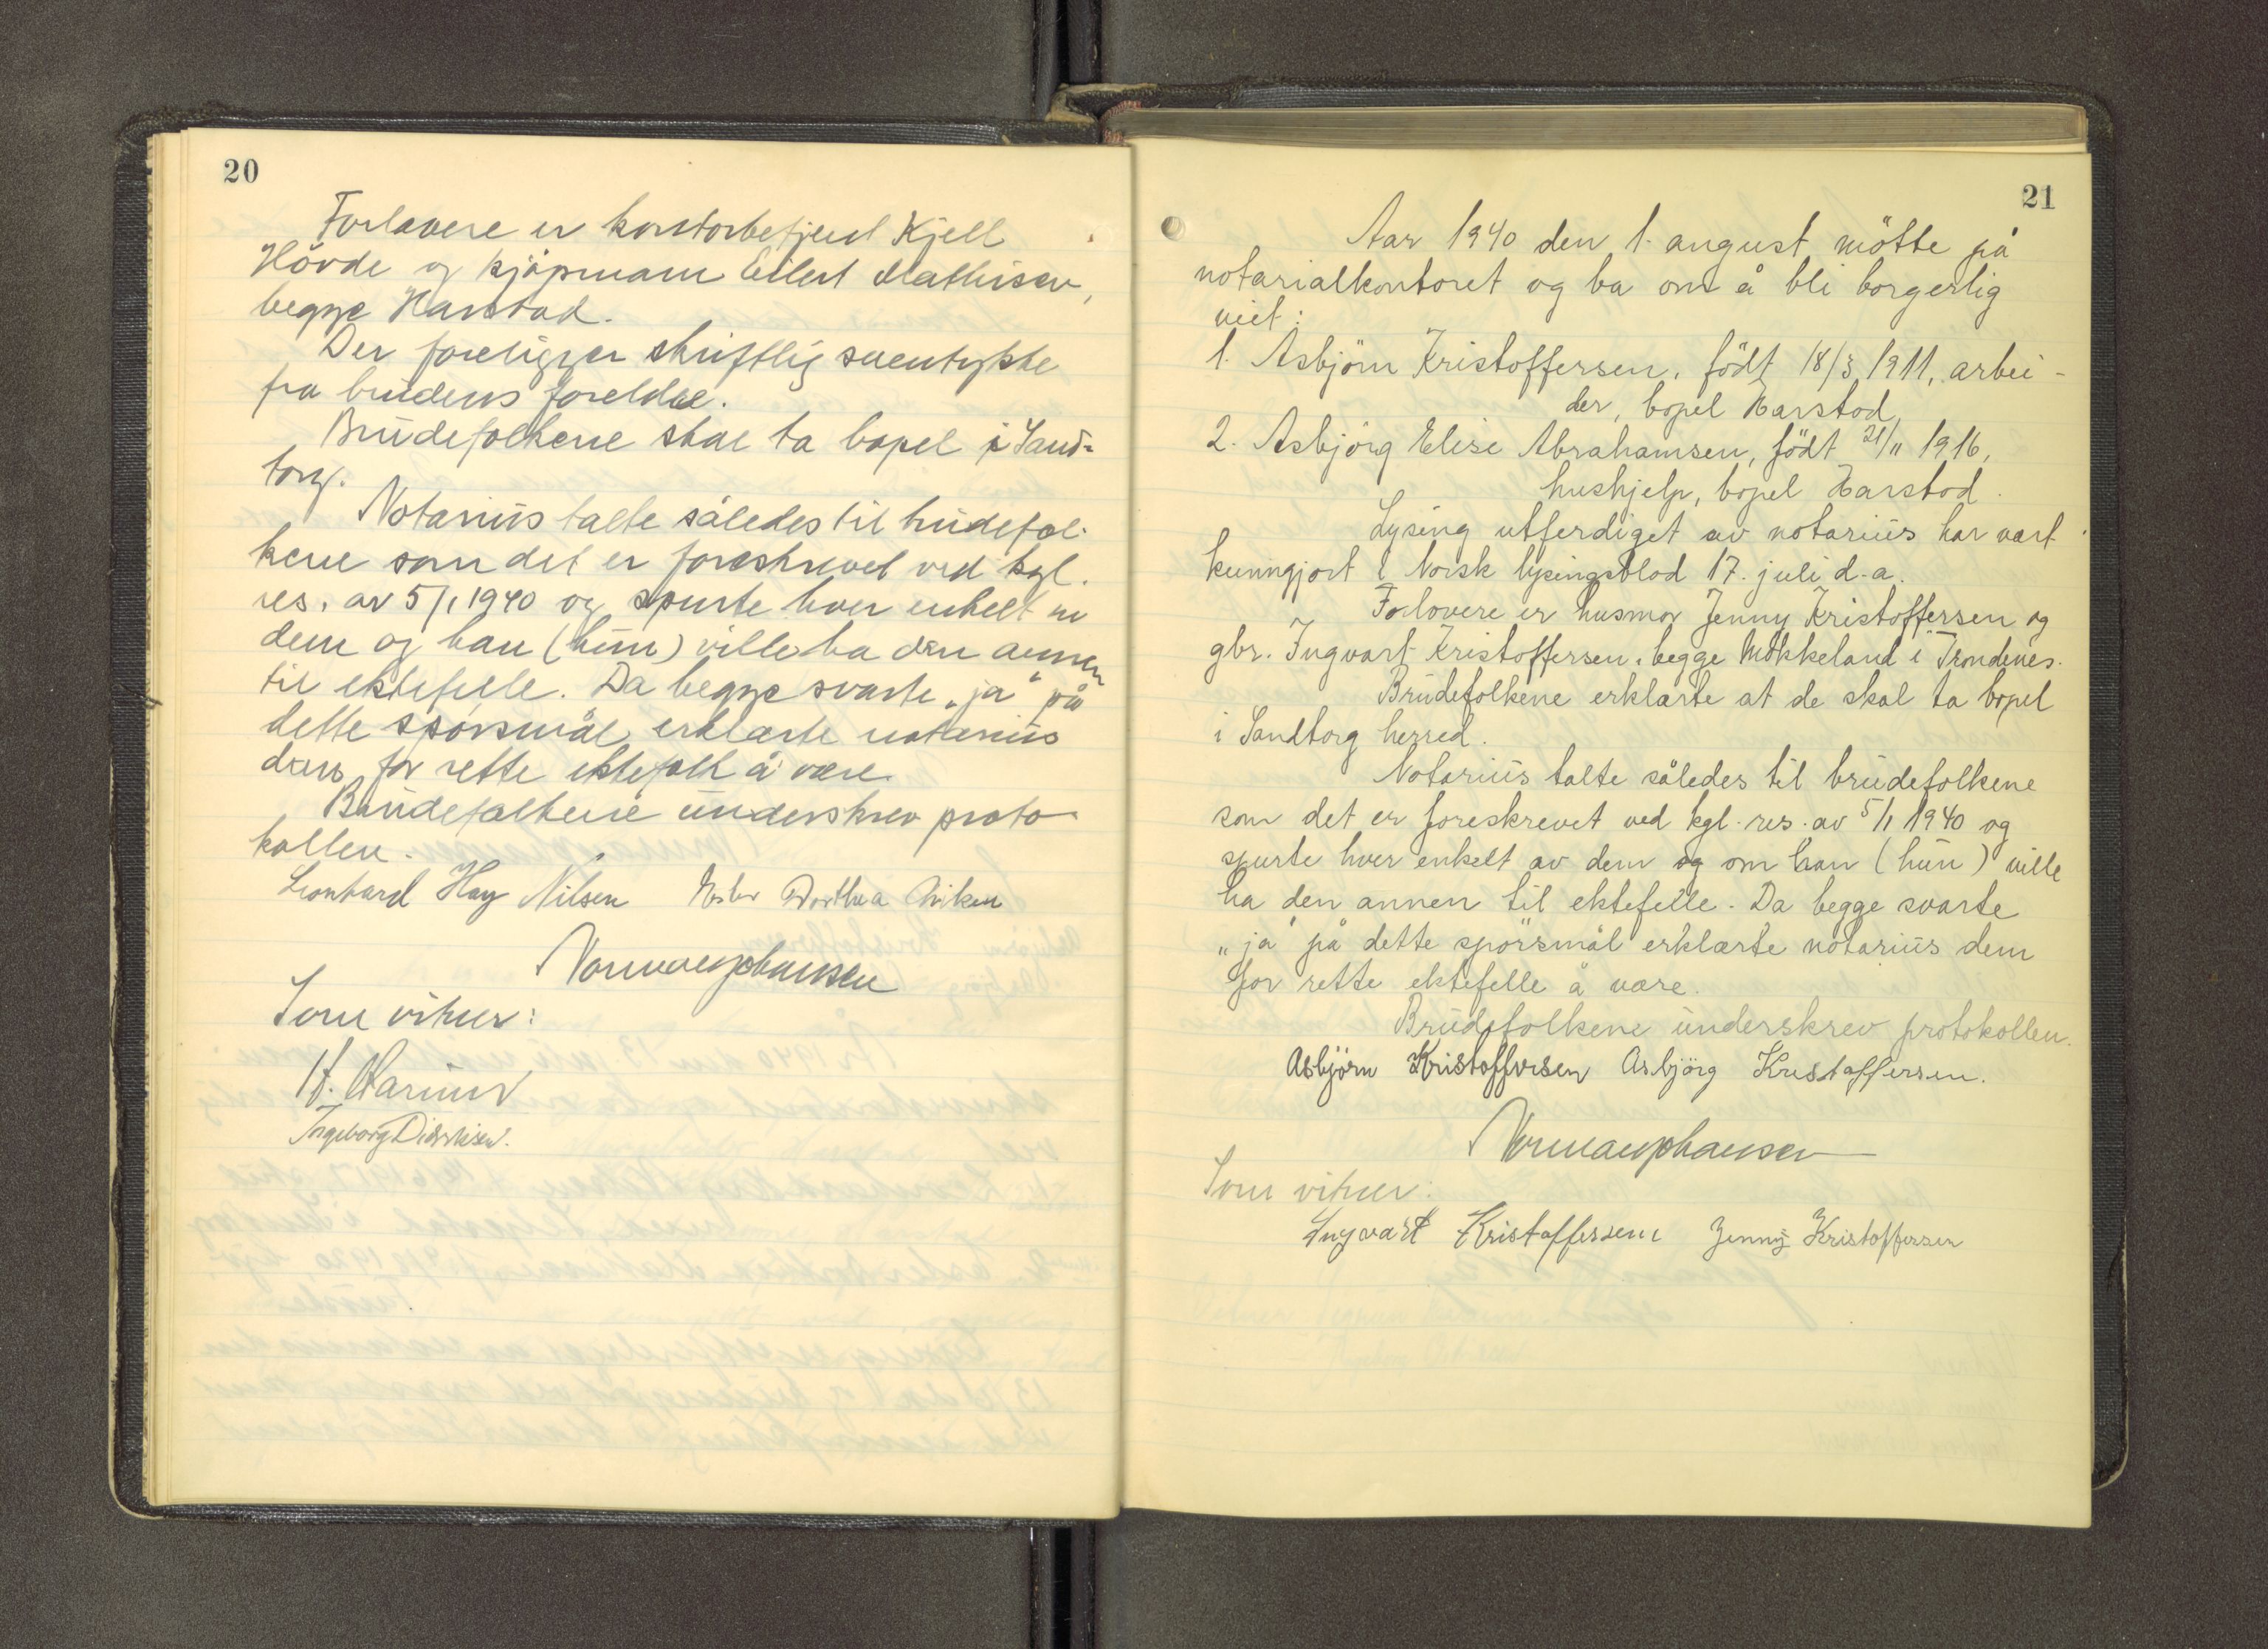 20
Forlovere er konstorbetjent Kjell
Hövde og kjöpmann Eilert Mathisen,
begge Harstad.
Der foreligger skriftlig samtykke
fra brudens foreldre.
Brudefolkene skal ta bopel i Sand-
torg.
Notarius talte således til brudefol-
kene som det er foreskrevet ved kgl.
res. av 5/1 1940 og spurte hver enkelt av
dem og han (hun) ville ha den annen
til ektefelle. Da begge svarte „ja" på
dette spörsmål erklærte notarius
dem for rette ektefolk å være.
Brudefolkene underskrev proto-
kollen.
Leonhard Hag Nilsen Ester Dorthea
Som vitner:
H. Marius
Ingeborg Didriksen.
21
Aar 1940 den 1. august mötte på
notarialkontoret og ba om å bli borgerlig
viet:
1. Asbjörn Kristoffersen, födt 18/3 1911, arbei-
der, bopel Harstad,
2. Asbjörg Elise Abrahamsen, födt 21/11 1916,
hushjelp, bopel Harstad.
Lysing utferdiget av notarius har vært
kunngjort i Norsk lysingsblad 17. juli d.a.
Forlovere er husmor Jenny Kristoffersen og
gbr. Ingvart Kristoffersen, begge Mökkeland i Trondenes.
Brudefolkene erklærte at de skal ta bopel
i Sandtorg herred.
Notarius talte således til brudefolkene
som det er foreskrevet ved kgl. res. av 5/1 1940 og
spurte hver enkelt av dem og om han (hun) ville
ha den annen til ektefelle. Da begge svarte
„ja" på dette spörsmål erklærte notarius dem
for rette ektefelle å være.
Brudefolkene underskrev protokollen.
Asbjörn Kristoffersen Asbjörg Kristoffersen.
Som vitner:
Ingvart Kristoffersen Jenny Kristoffersen